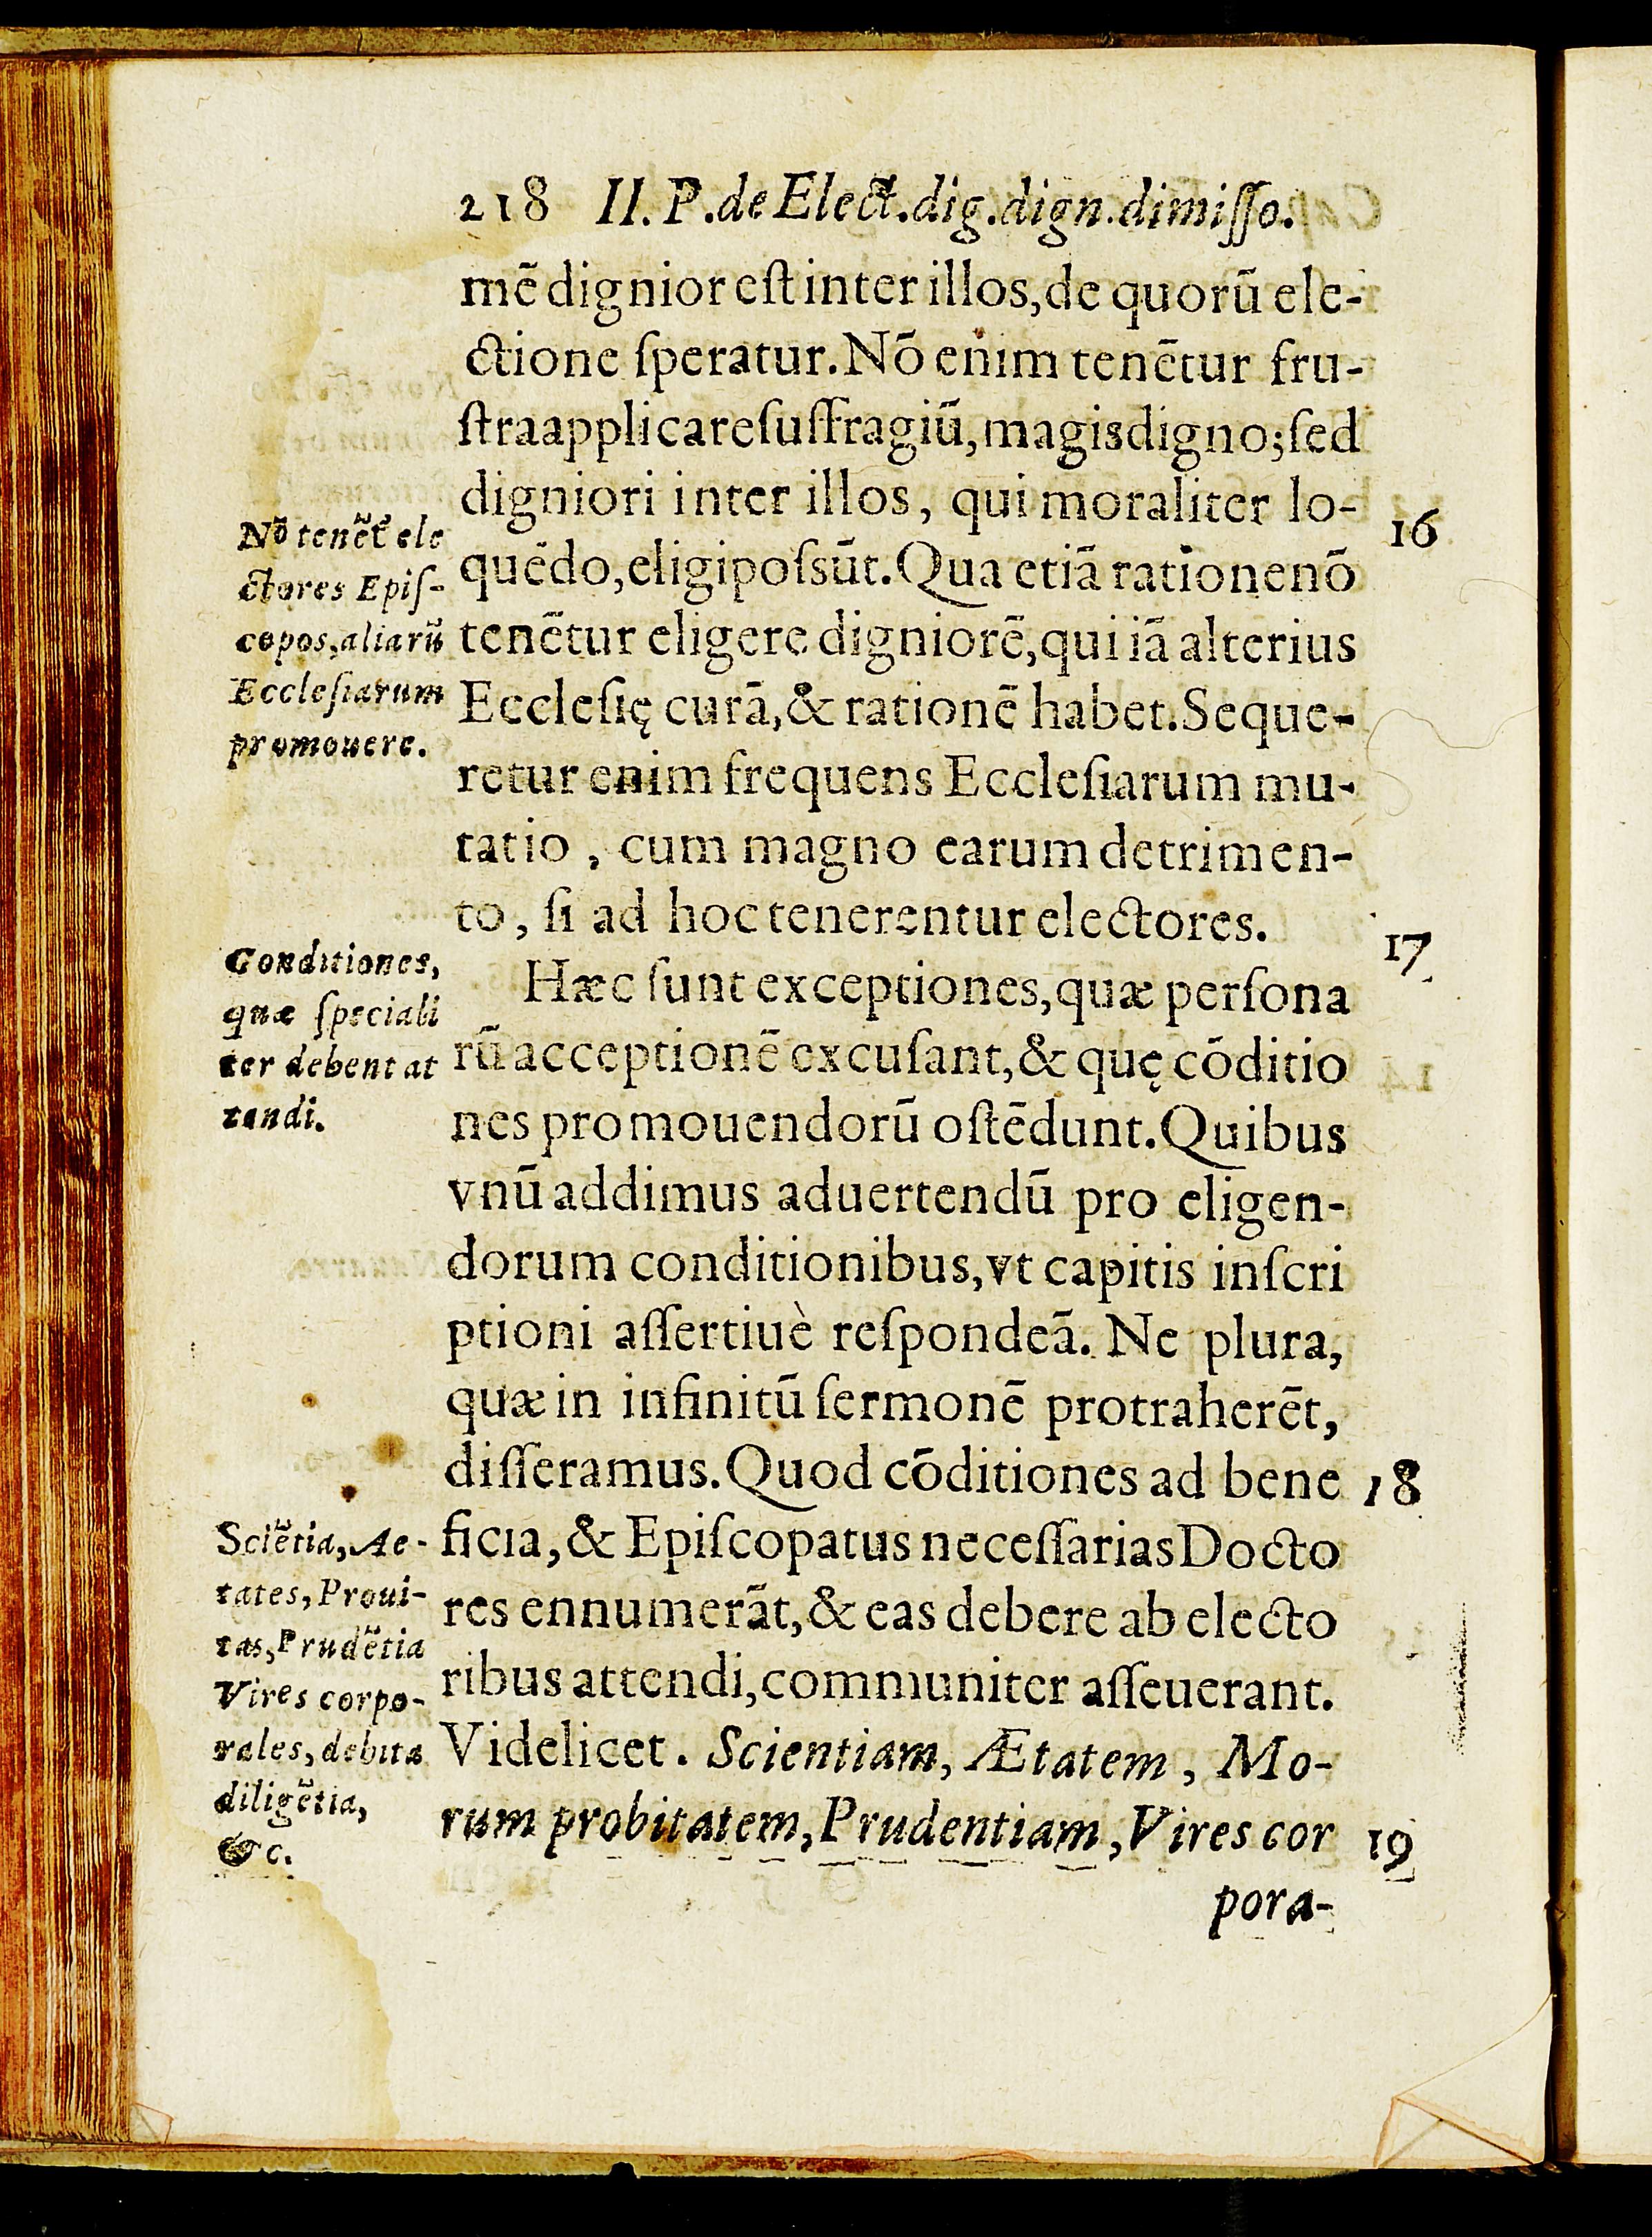 218 II. P. de Elect. dig. dign. dimiſſo.
mē dignior eſt inter illos, de quorū ele-
ctione ſperatur. Nō enim tenētur fru-
ſtra applicare ſuffragiū, magis digno; ſed
digniori inter illos, qui moraliter lo-
quēdo, eligi poſsūt. Qua etiā ratione nō
tenētur eligere digniorē, qui iā alterius
Eccleſię curā, & rationē habet. Seque-
retur enim frequens Eccleſiarum mu-
tatio, cum magno earum detrimen-
to, ſi ad hoc tenerentur electores.
Hæc ſunt exceptiones, quæ perſona
rū acceptionē excuſant, & quę cōditio
nes promouendorū oſtēdunt. Quibus
vnū addimus aduertendū pro eligen-
dorum conditionibus, vt capitis inſcri
ptioni aſſertiuè reſpondeā. Ne plura,
quæ in infinitū ſermonē protraherēt,
diſſeramus. Quod cōditiones ad bene
ficia, & Epiſcopatus neceſſarias Docto
res ennumerāt, & eas debere ab electo
ribus attendi, communiter aſſeuerant.
Videlicet. Scientiam, Ætatem, Mo-
rum probitatem, Prudentiam, Vires cor
pora-
Nō tenēt ele
ctores Epiſ-
copos, aliarū
Eccleſiarum
promouere.
Conditiones,
quæ ſpeciali
ter debent at
tendi.
Sciētia, Ae-
tates, Proui-
tas, Prudētia
Vires corpo-
rales, debita
diligētia,
&c.
16
17
18
19